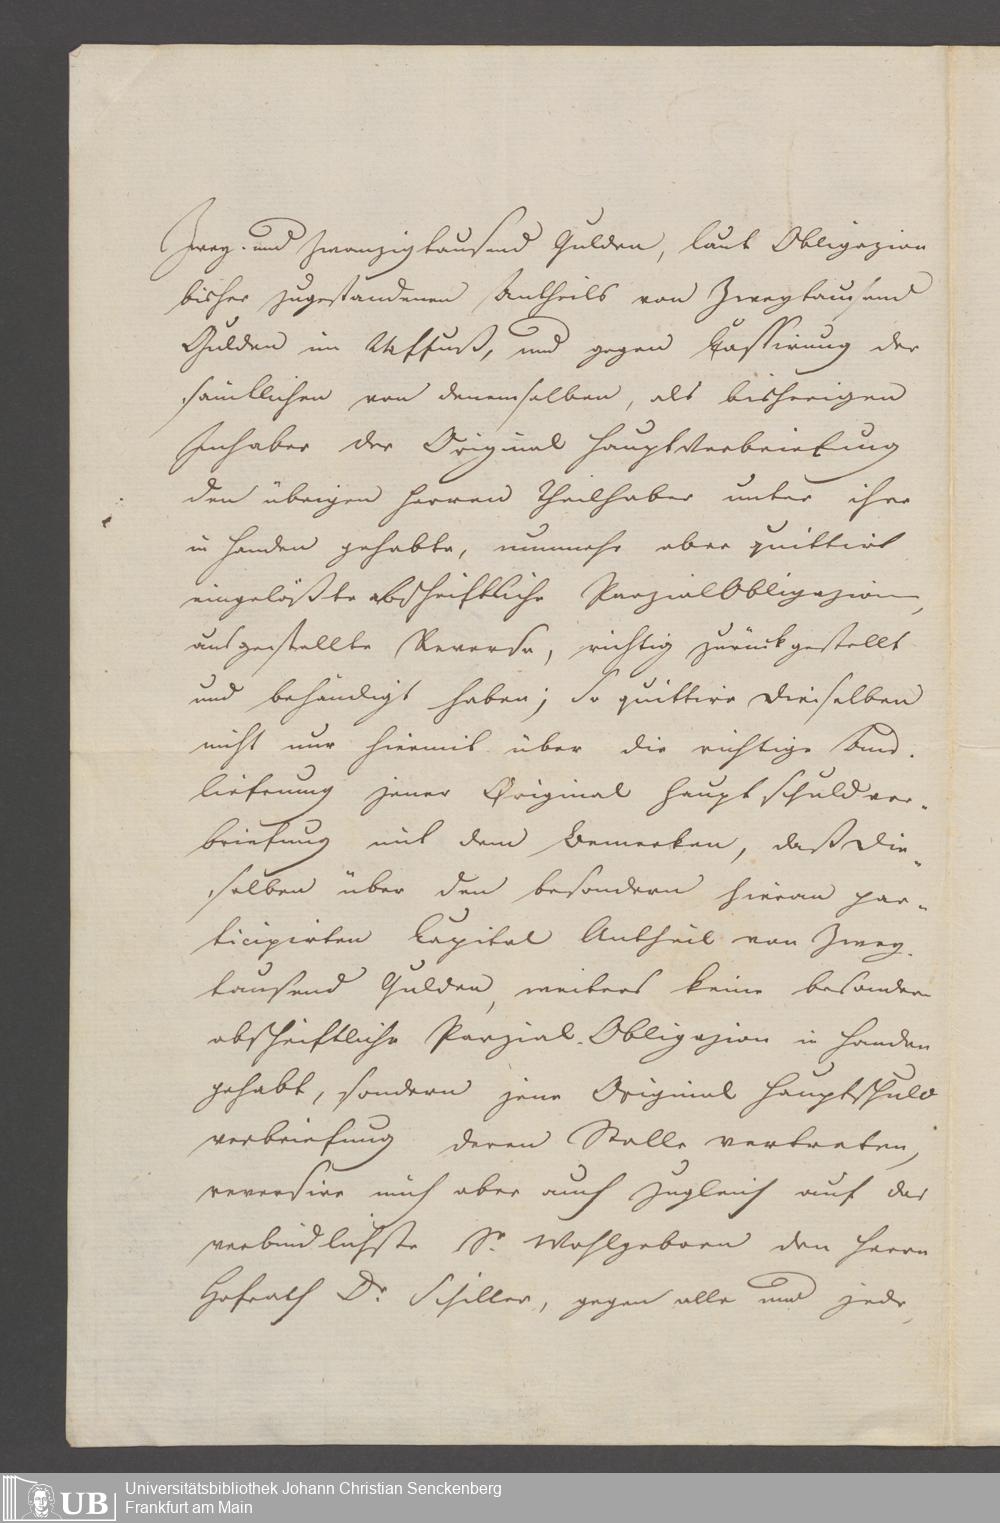 Zwey- und zwanzigtausend Gulden, laut Obligazion
bisher zugestandenen Antheils von Zweytausend
Gulden im 24 f fuß, und gegen Cassirung der
sämtlichen von denenselben, als bisherigen
Inhaber der Original Hauptverbriefung
den übrigen Herren Theilhaber unter ihre
in Handen gehabte, nunmehr aber quittirt
eingelößte abschriftliche Parzial Obligazion,
ausgestellte Reverse, richtig zurückgestellt
und behändigt haben; So quittire dieselben
nicht nur hiermit über die richtige
lieferung jener Original Haupt schuldver-
briefung mit dem Bemerken, daß die-
selben über den besondern hieran par-
ticipirten Capital Antheil von Zwey-
tausend Gulden, weiters keine besondere
abschriftliche Parzial-Obligazion in Handen
gehabt, sondern jene Original Hauptschuld
verbriefung deren Stelle vertreten,
reversire mich aber auch zugleich auf das
verbindlichste Sr. Wohlgeboren den Herrn
Hofrath Dr. Schiller, gegen alle und jede,
Universitätsbibliothek Johann Christian Senckenberg
Frankfurt am Main
UB